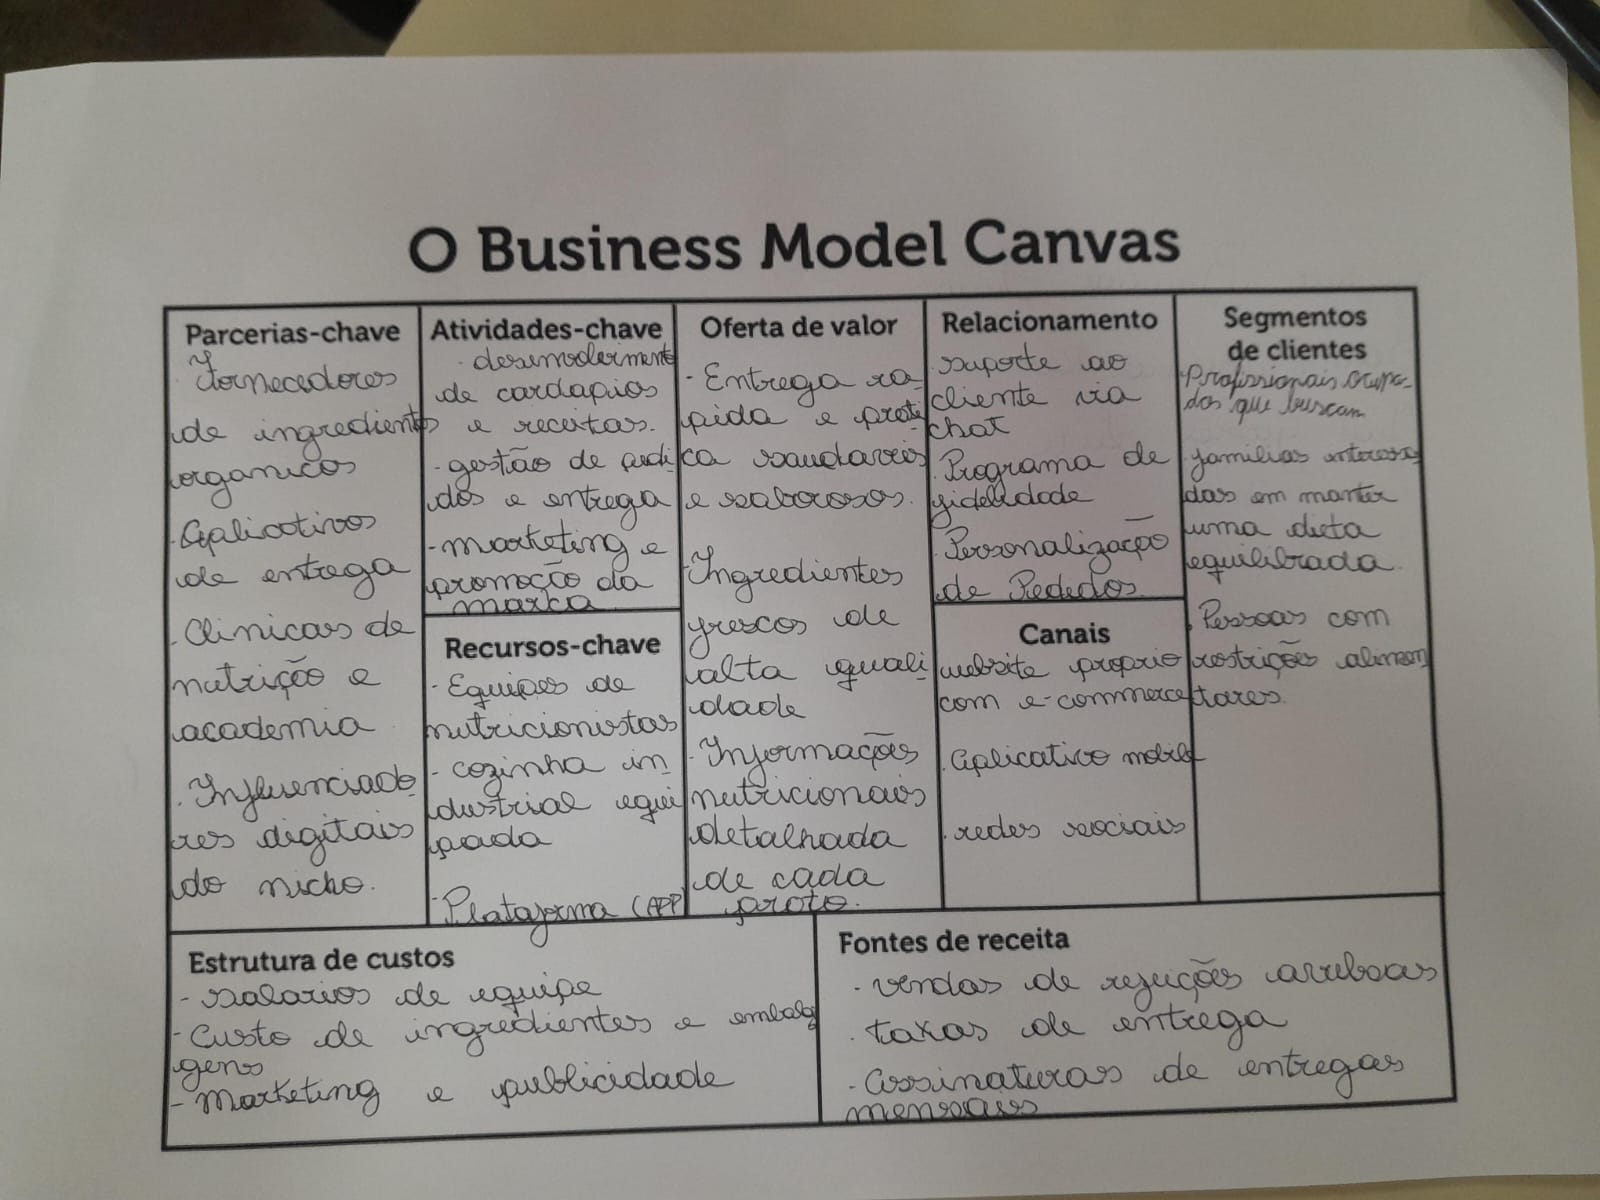 O Business Model Canvas
Parcerias-chave
· Fornecedores
de ingredientes
organicos
· Aplicativos
de entrega
· Clinicas de
nutrição e
academia
· Influenciado
res digitais
do nicho.
Atividades-chave
· desenvolvimento
de cardapios
e receitas.
- gestão de pedi
dos e entrega
- marketing e
promoção da
marca
Recursos-chave
- Equipes de
nutricionistas
- cozinha in
dustrial equi
pada
- Plataforma (APP)
Oferta de valor
- Entrega ra
pida e prati
ca saudaveis
e saborosos.
- Ingredientes
frescos de
alta quali
dade
- Informações
nutricionais
detalhada
de cada
prato.
Relacionamento
suporte ao
cliente via
chat
· Programa de
fidelidade
· Personalização
de Pedidos
Canais
website proprio
com e-commerce
· aplicativo mobile
· redes sociais
Segmentos
de clientes
· Profissionais ocupa-
dos que buscam
· familias interessa
das em manter
uma dieta
equilibrada.
· Pessoas com
restrições alimen
tares.
Estrutura de custos
- salarios de equipe
- Custo de ingredientes e embala
gens
- Marketing e publicidade
Fontes de receita
· vendas de
· taxas de entrega
· assinaturas de entregas
mensais